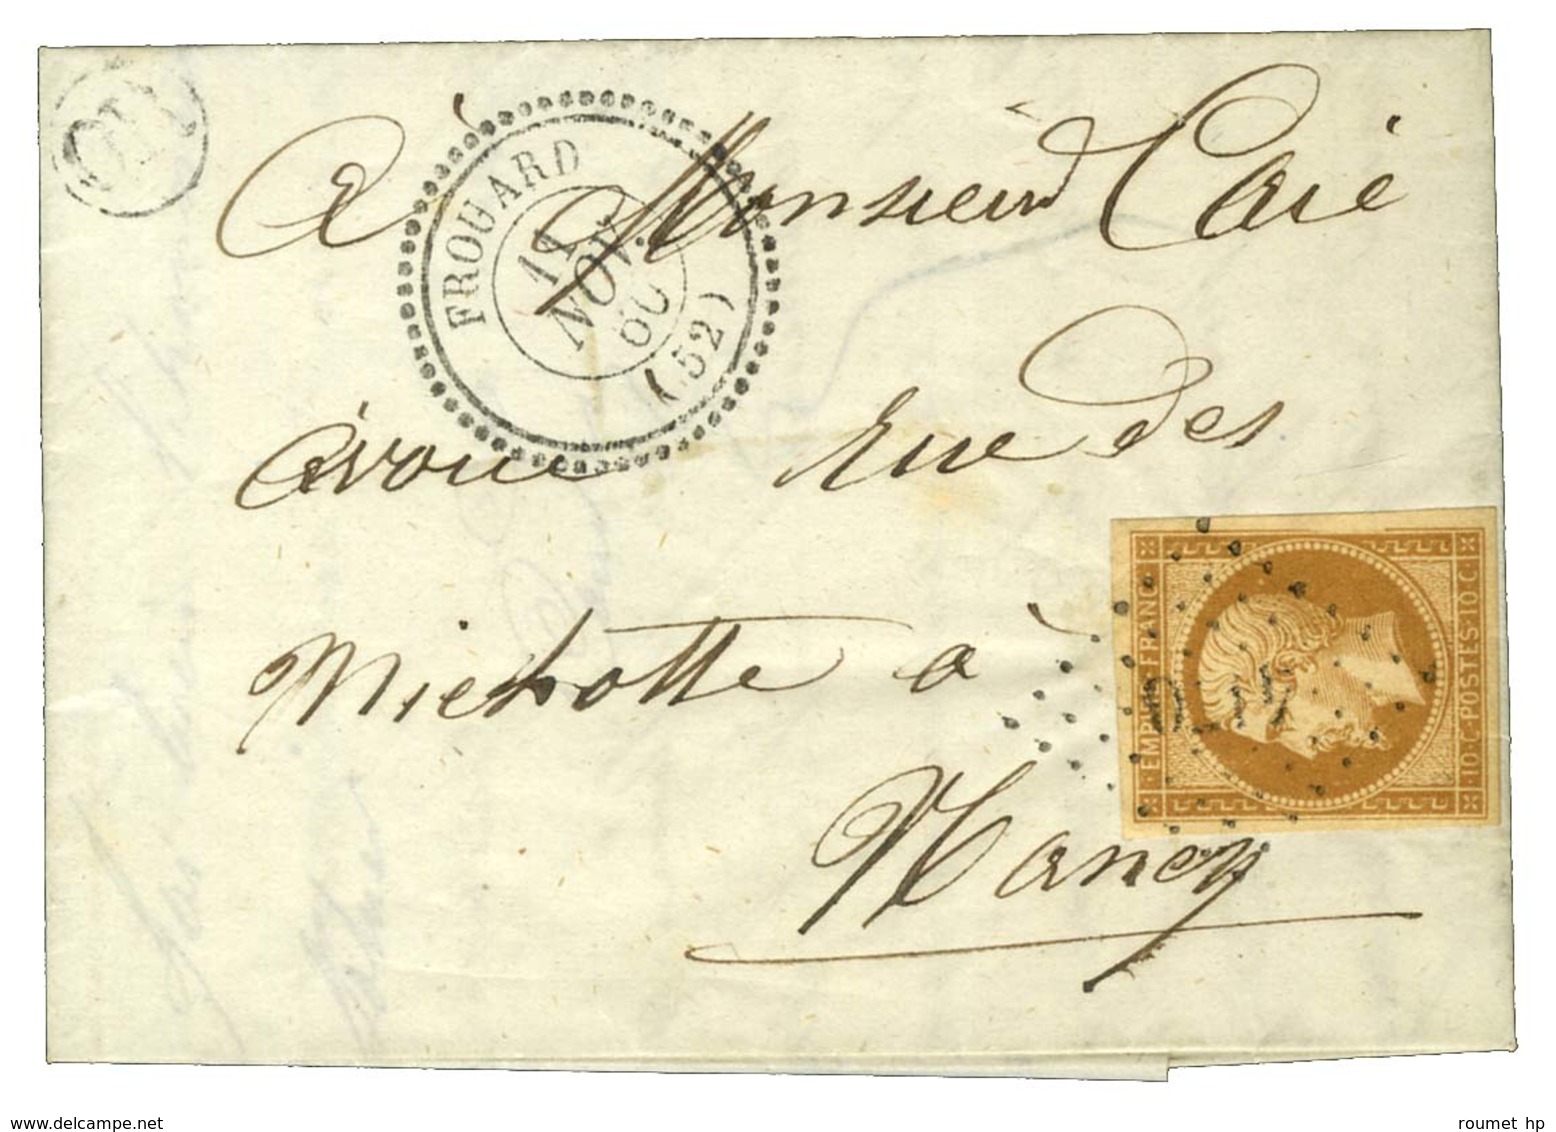 OR
FROUARD
11
NOV.
60
(52)
à Monsieur Caïé
avoué Rue des
Michotte à
Nancy
EMPIRE FRANC
10 C. POSTES 10 C.
www.delcampe.net
roumet hp